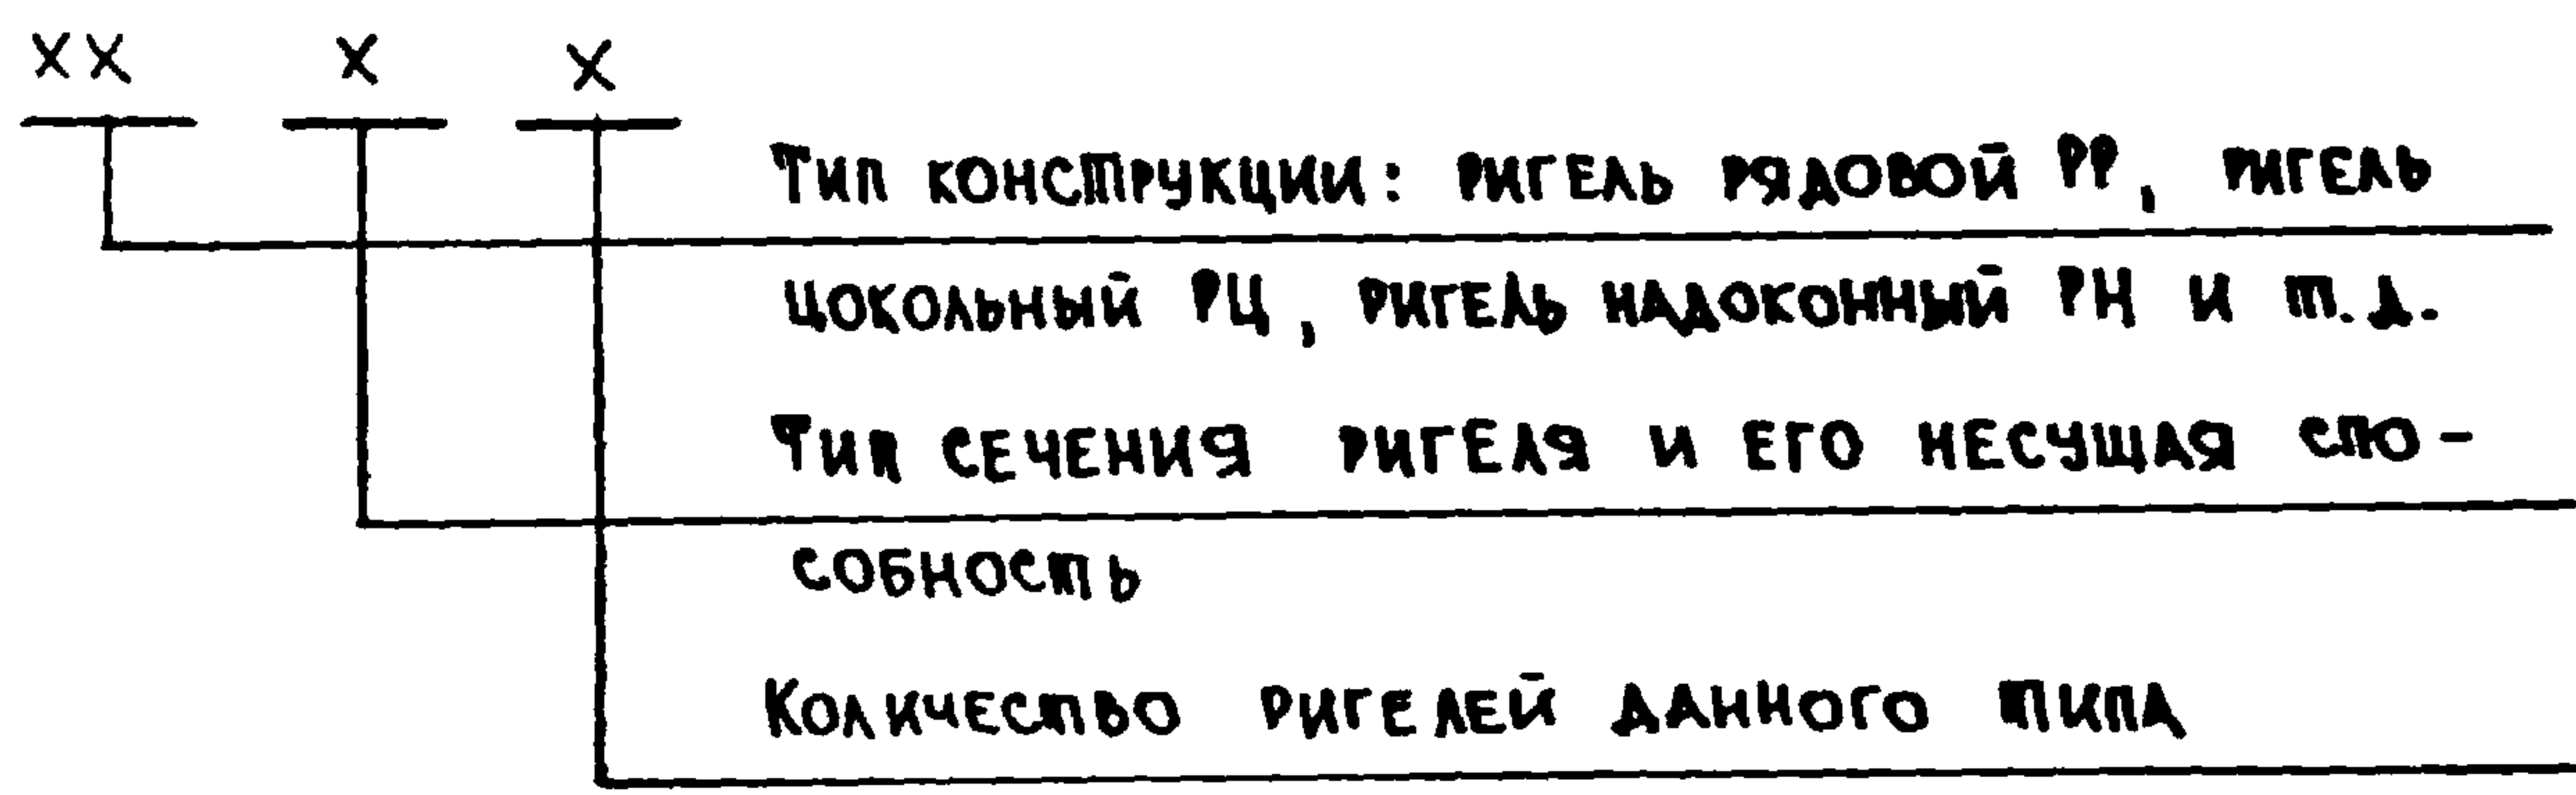 ХХ Х Х
Тип конструкции: ригель рядовой РР, ригель
цокольный РЦ, ригель надоконный РН и т.д.
Тип сечения ригеля и его несущая спо-
собность
Количество ригелей данного типа